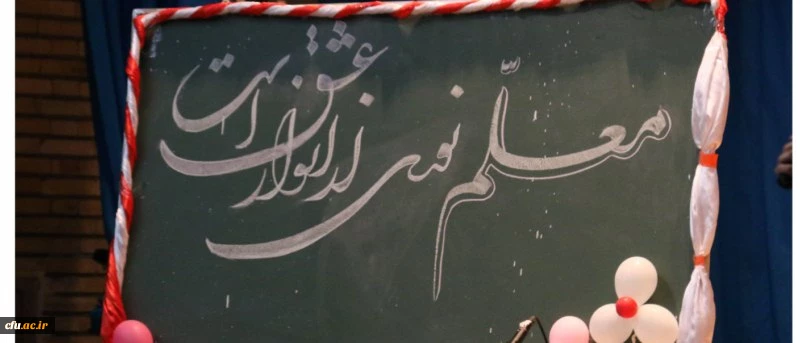 معلّم نوری از انوار عشق است
cfu.ac.ir